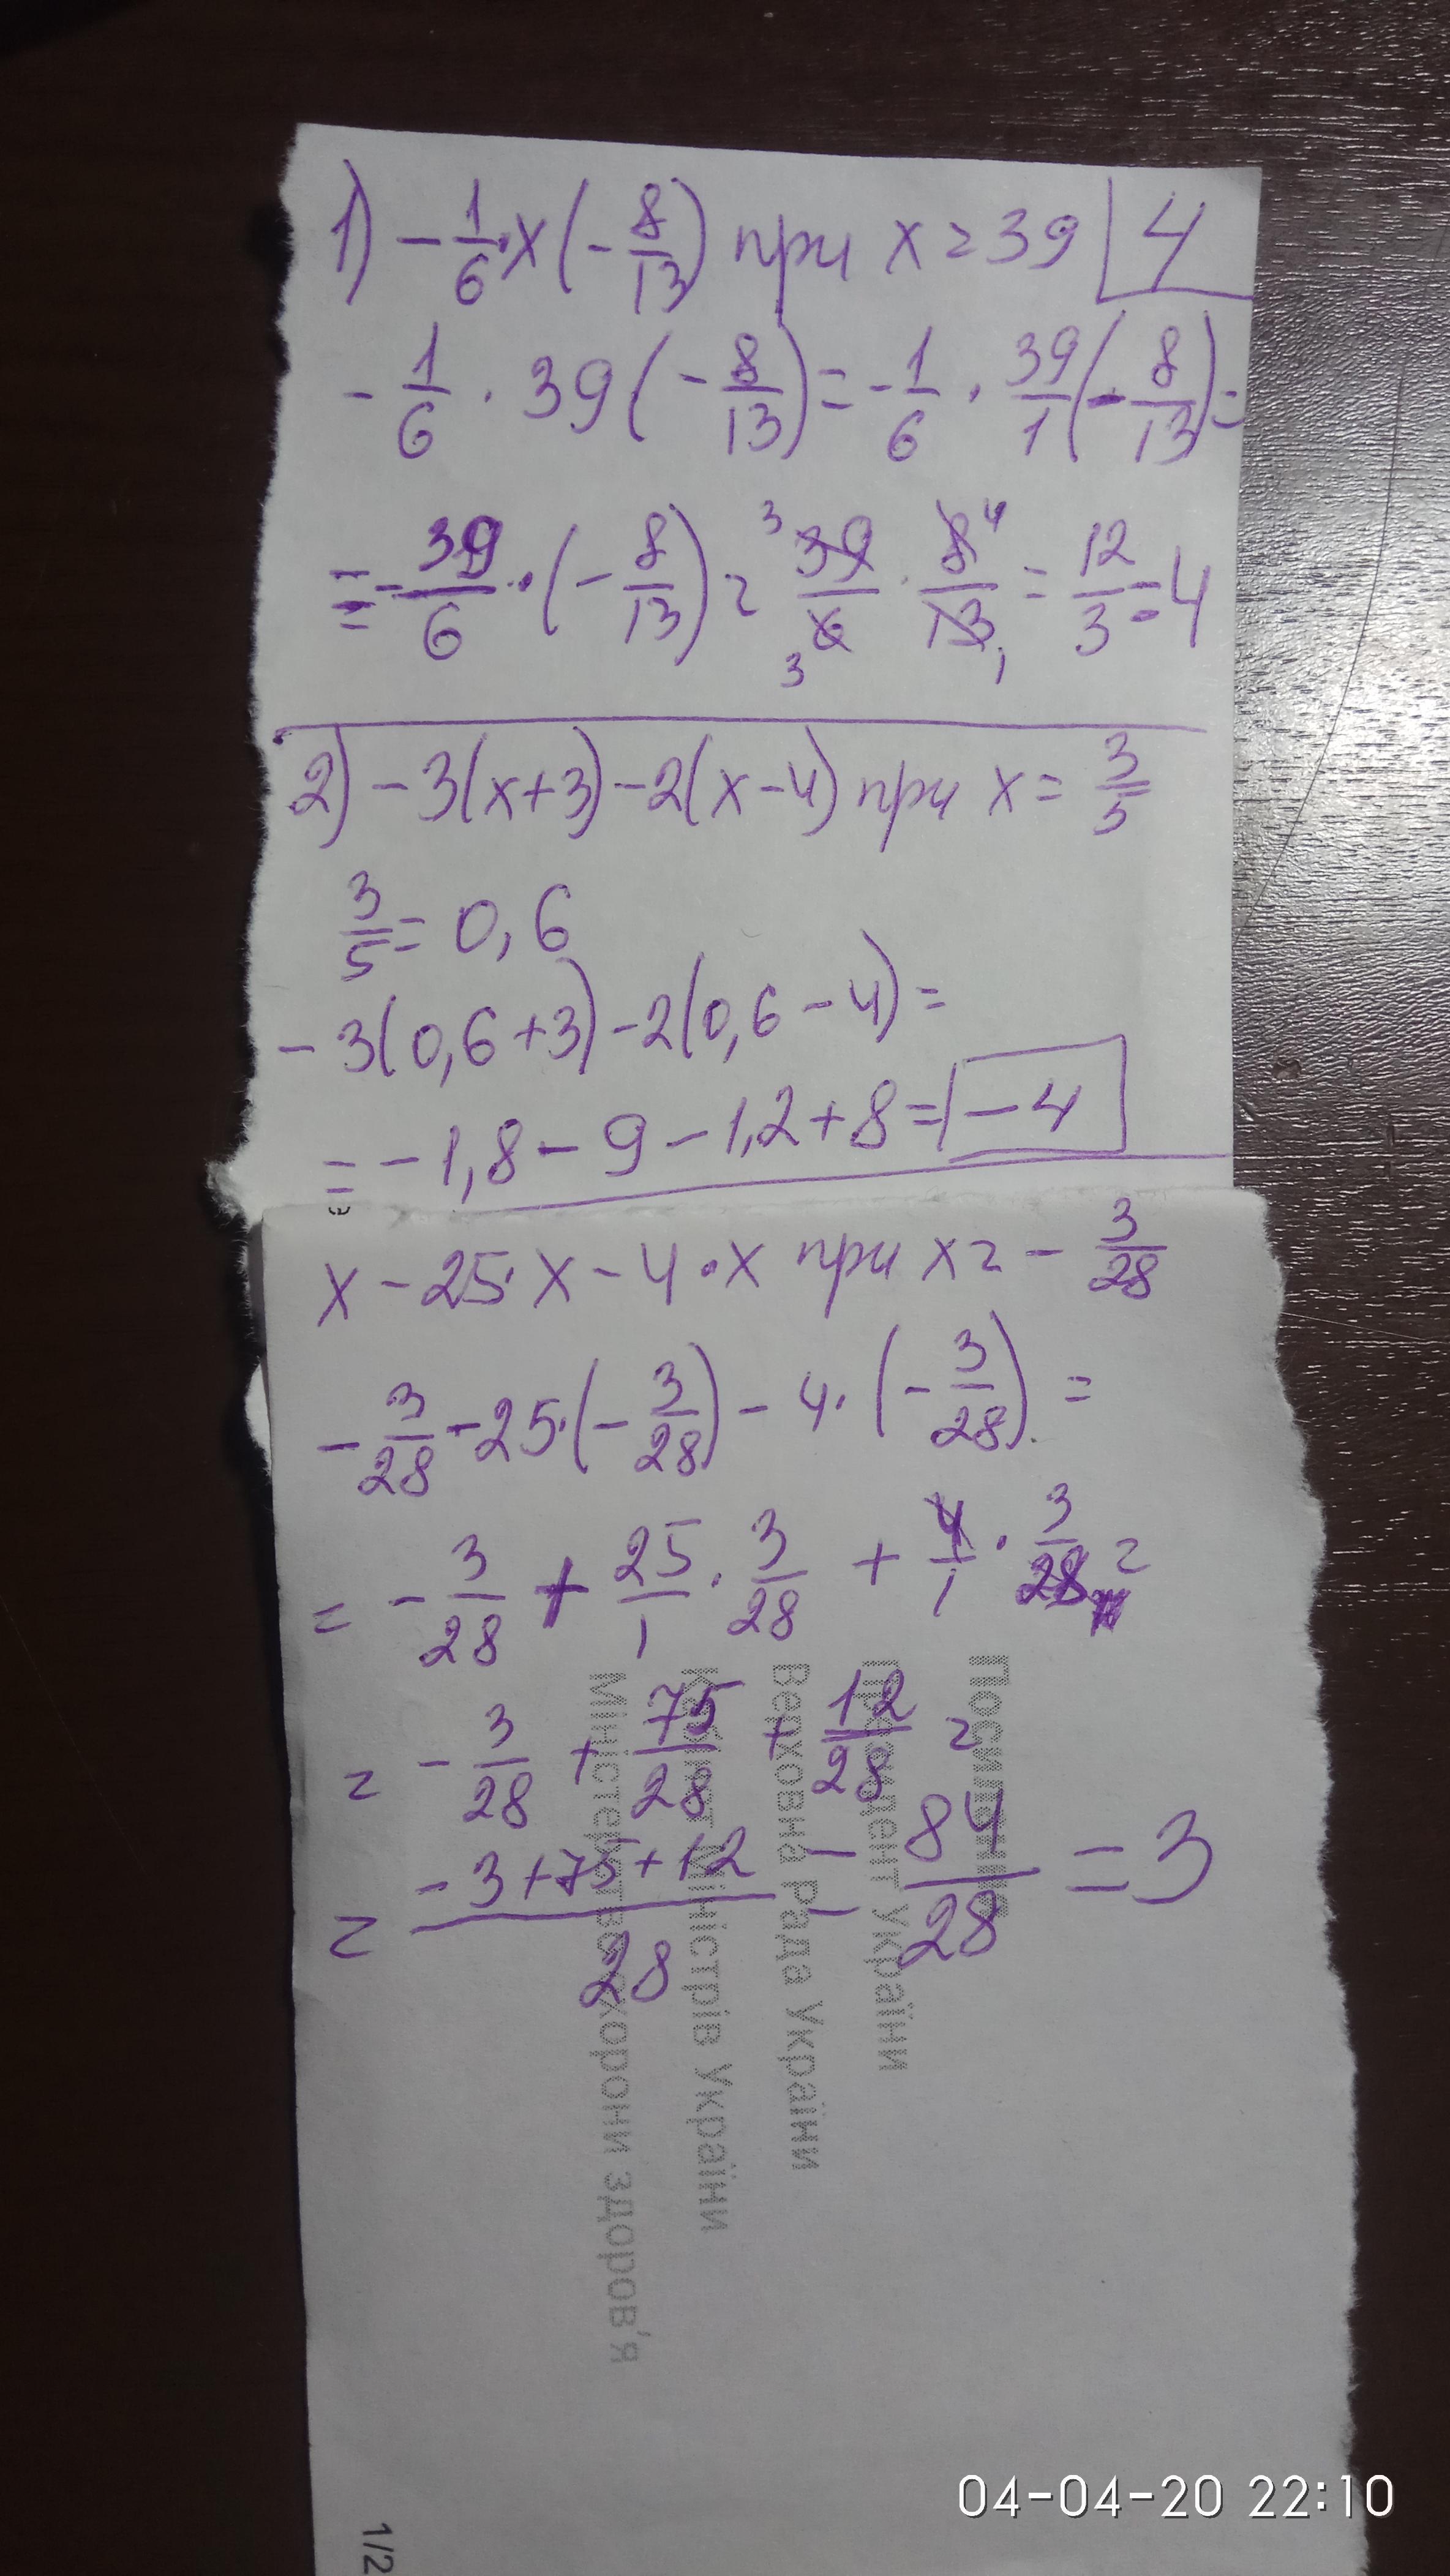 1) - 1/6 · x (- 8/13) при x = 39 | 4
- 1/6 · 39 (- 8/13) = - 1/6 · 39/1 (- 8/13) =
= - 39/6 · (- 8/13) = 3 39/6 3 · 8 4/13 1 = 12/3 = 4
2) - 3(x+3) - 2(x-4) при x = 3/5
3/5 = 0,6
- 3(0,6+3) - 2(0,6-4) =
= - 1,8 - 9 - 1,2 + 8 = - 4
x - 25 · x - 4 · x при x = - 3/28
- 3/28 - 25 · (- 3/28) - 4 · (- 3/28) =
= - 3/28 + 25/1 · 3/28 + 4/1 · 3/28 =
= - 3/28 + 75/28 + 12/28 =
= (-3+75+12)/28 = 84/28 = 3
Президент України
Верховна Рада України
Кабінет Міністрів України
Міністерство охорони здоров'я
1/2
04-04-20 22:10